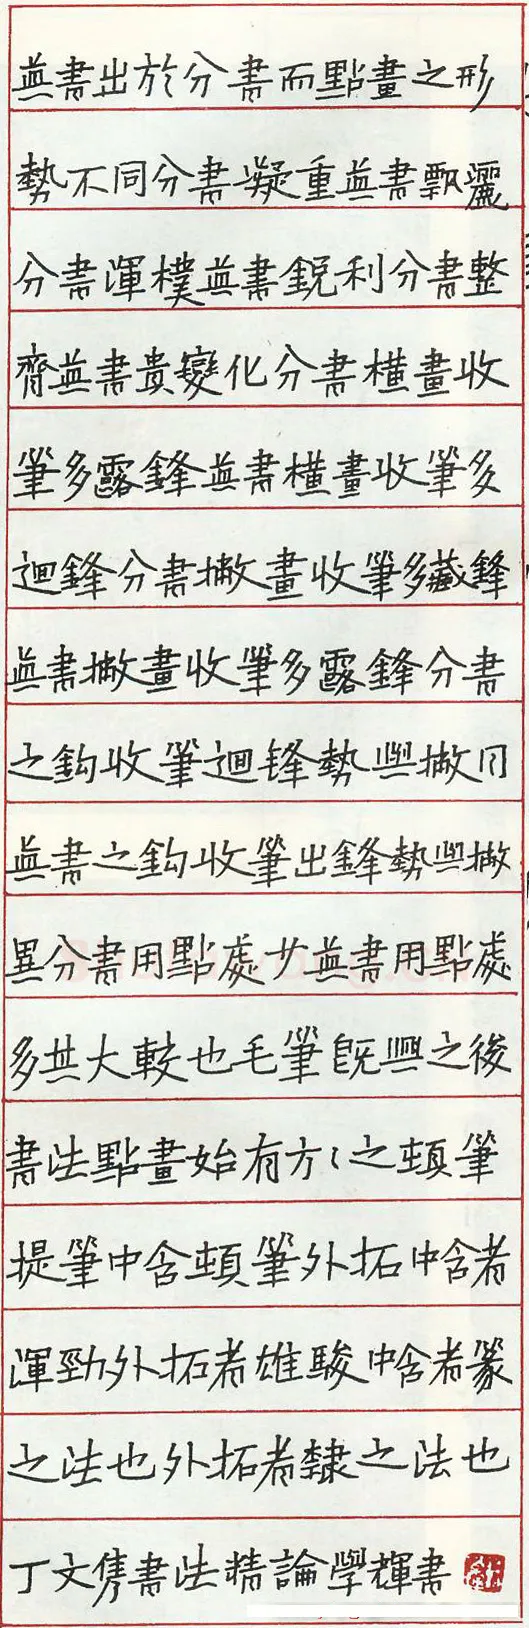 真書出於分書而點畫之形
勢不同分書凝重真書飄灑
分書渾樸真書銳利分書整
齊真書貴變化分書橫畫收
筆多露鋒真書橫畫收筆多
迴鋒分書撇畫收筆多藏鋒
真書撇畫收筆多露鋒分書
之鈎收筆迴鋒勢與撇同
真書之鈎收筆出鋒勢與撇
異分書用點處少真書用點處
多其大較也毛筆既興之後
書法點畫始有方之頓筆
提筆中含頓筆外拓中含者
渾勁外拓者雄駿中含者篆
之法也外拓者隸之法也
丁文雋書法精論學輝書